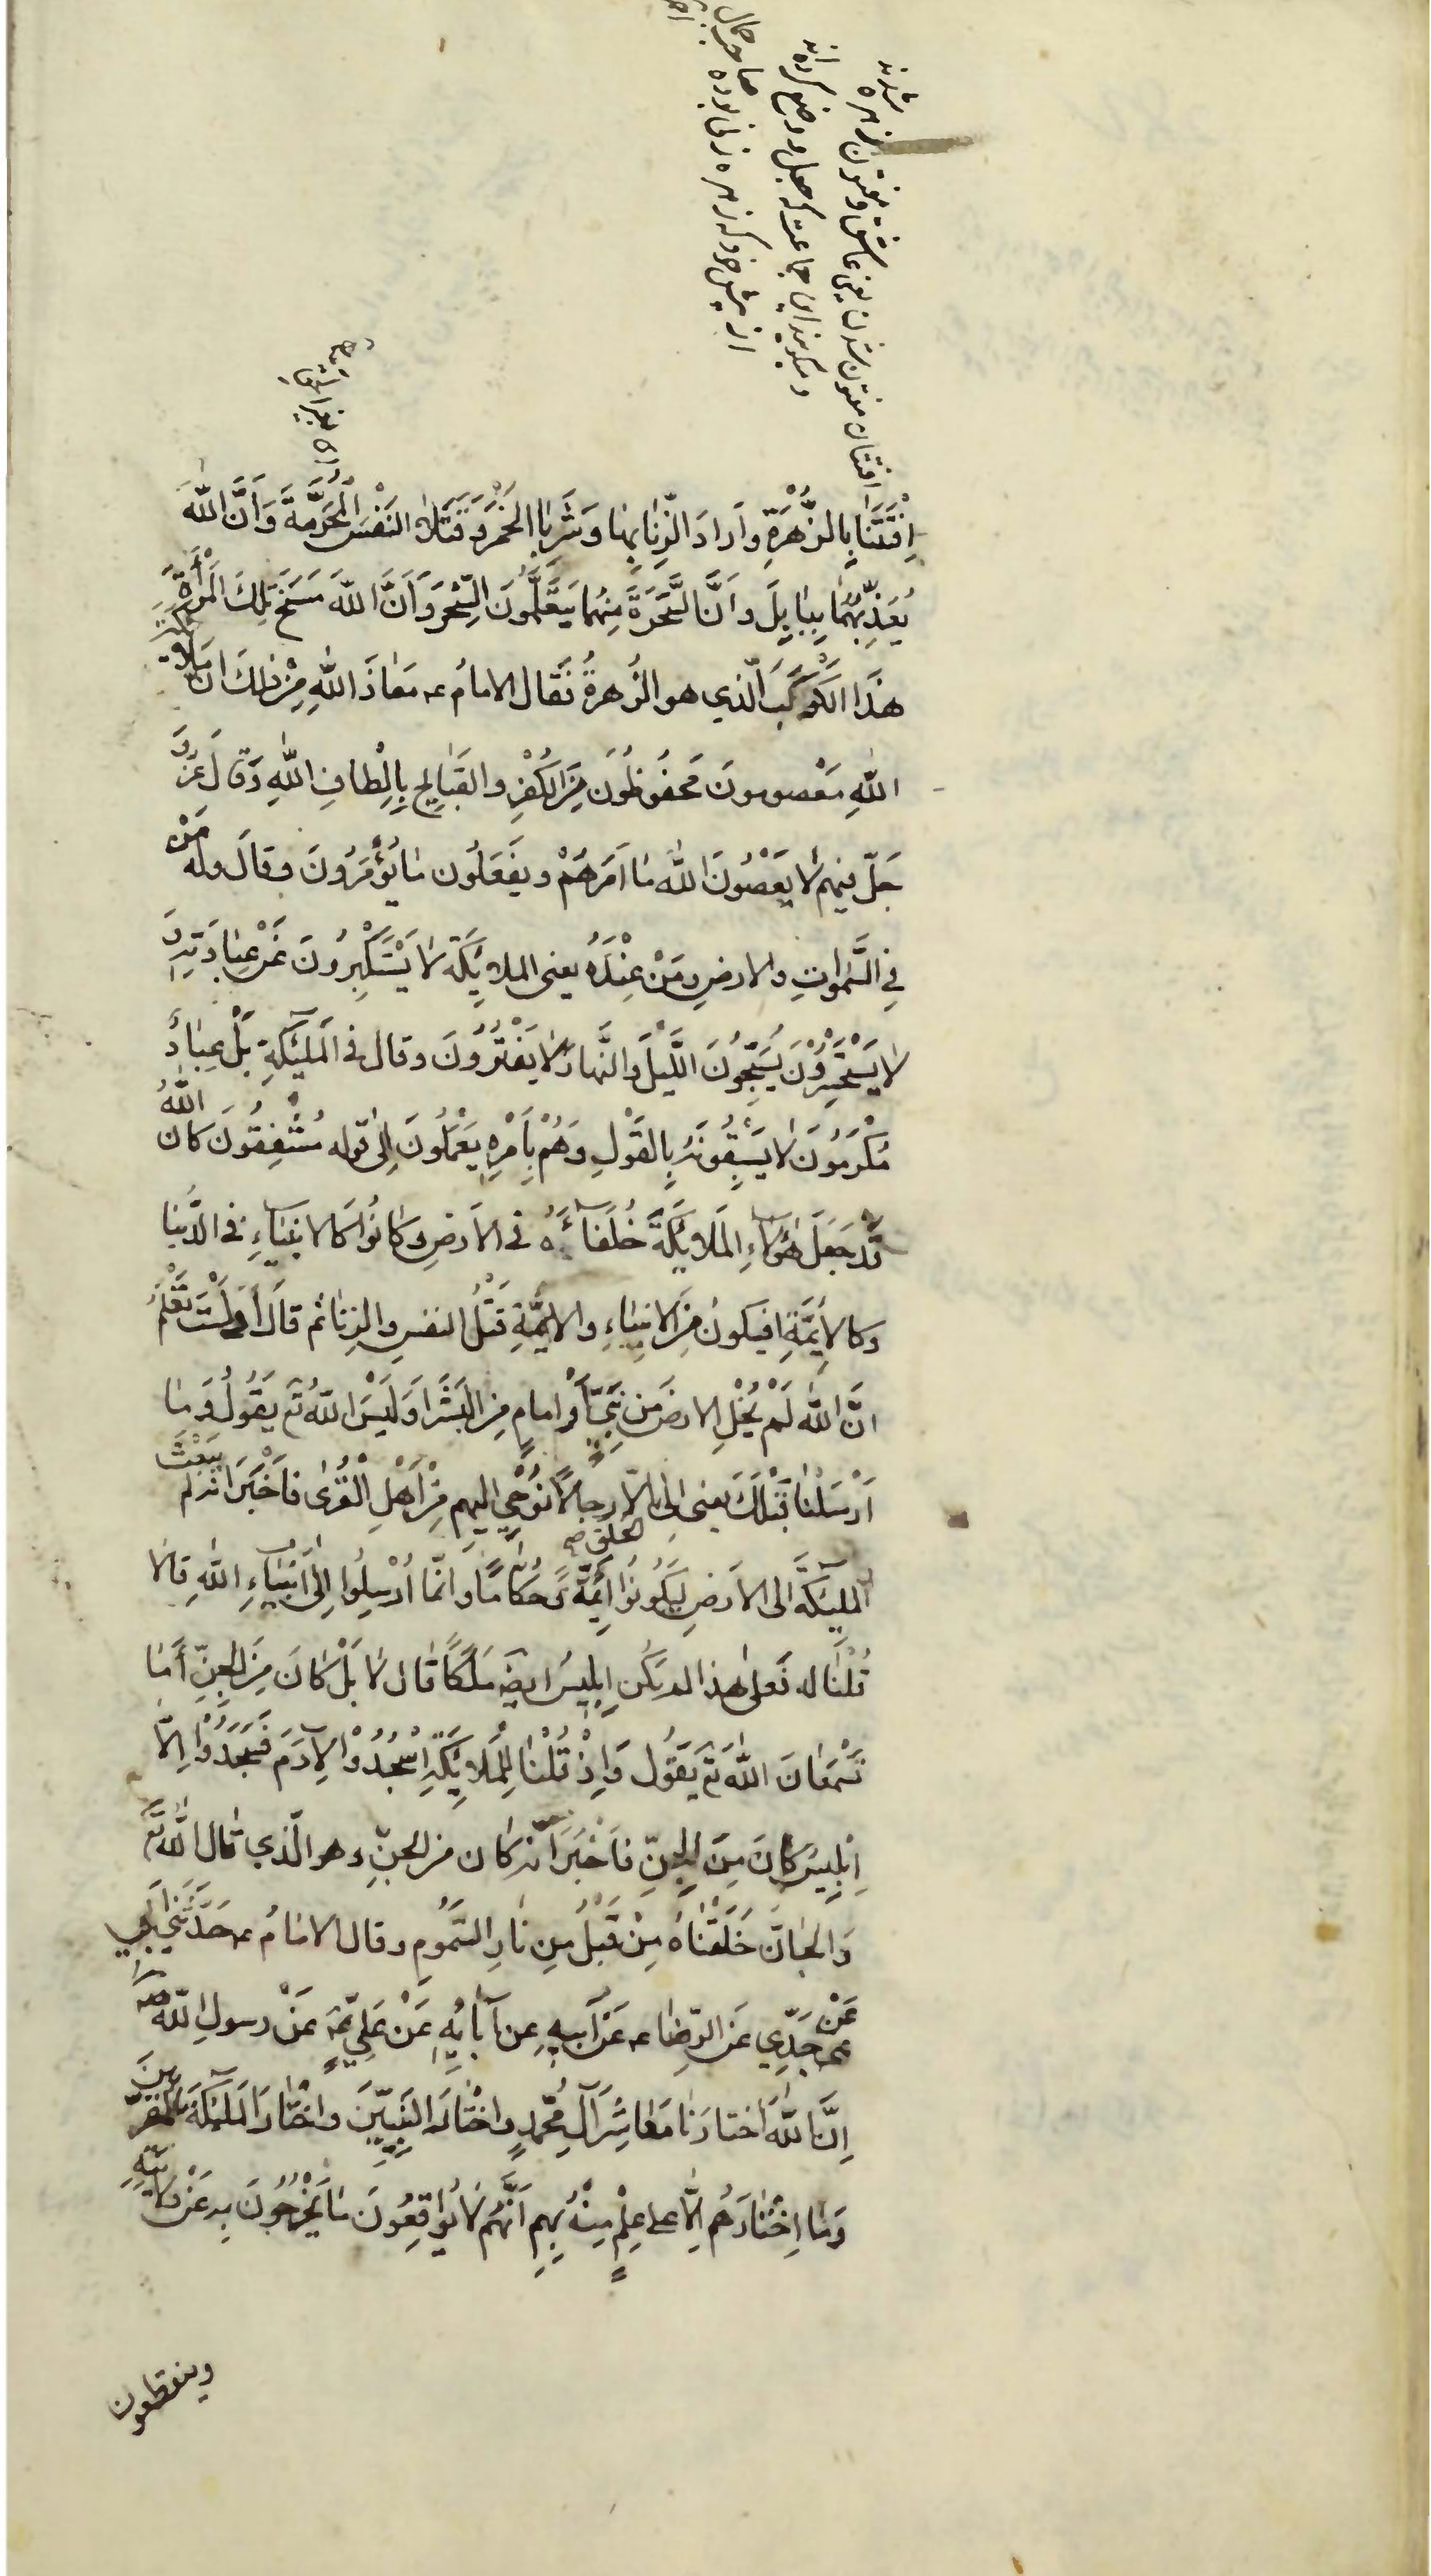 افتتان مفتون شدن یعنی عاشق و مفتون زهره شدند
و میگویند این جماعت که جعل و وضع کرده‌اند
از پیش خود که زهره زنی بوده صاحب جمال
اِفْتَتَنا بِالزُّهْرَةِ وَاَرادَ الزِّنا بِها وَشَرِبَا الْخَمْرَ وَقَتَلَا النَفْسَ الْمُحَرَّمَةَ وَاَنَّ اللهَ
يُعَذِّبُهُمَا بِبابِلَ وَاَنَّ السَّحَرَةَ مِنْهُما يَتَعَلَّمُونَ السِّحْرَ وَاَنَّ اللهَ مَسَخَ تِلْكَ الْمَرْأَةَ
هذَا الْكَوْكَبَ الَّذي هو الزُهرةُ فَقال الامامُ ع مَعاذَ اللهِ مِنْ ذلِكَ انّ مَلائكة
اللهِ مَعْصومونَ مَحفُوظُونَ مِنَ الكُفْرِ والقَبايِحِ بِاَلْطافِ اللهِ وَقالَ عَزَّ وَ
جَلّ فيهم لا يَعْصُونَ اللهَ ما اَمَرَهُمْ ويَفْعَلُون ما يُؤْمَرُونَ وقالَ وله مَنْ
فِي السَّمٰواتِ والارضِ ومَنْ عِنْدَهُ يعنى الملائِكَة لا يَسْتَكْبِرُونَ عَنْ عِبادَتِهِ وَ
لا يَسْتَحْسِرُونَ يُسَبِّحُونَ اللَّيْلَ والنَّهارَ لا يَفْتُرُونَ وقال في الْمَلٰئِكَةِ بَلْ عِبادٌ
مُكْرَمُونَ لا يَسْبِقُونَهُ بِالقَوْلِ وَهُمْ بِاَمْرِهِ يَعْمَلُونَ اِلى قوله مُشْفِقُونَ كان اللهُ
قَد جَعَلَ هٰؤُلاءِ المَلائِكَةَ خُلَفآءَهُ فى الاَرضِ وكانُوا كَالانبياءِ فى الدُّنيا
وكالاَئِمَّةِ افيكونُ مِنَ الانبِياءِ والائِمَّةِ قَتْلُ النفسِ والزِنا ثم قالَ اَوَلَسْتَ تَعْلَمُ
انَّ اللهَ لَمْ يُخْلِ الارضَ مِن نَبِىٍّ اَوْ امامٍ مِنَ البَشَرِ اَوَلَيْسَ اللهُ تع يَقُولُ وَما
اَرْسَلْنا قَبْلَكَ يعنى اِلى الخلق اِلّا رِجالًا نُوحي اليهم مِنْ اَهْلِ الْقُرىٰ فَاَخْبَرَ انه لم يَبْعَثْ
الملٰئكةَ الى الاَرضِ لِيَكُونُوا اَئِمَّةً وحُكّامًا وَاِنّما اُرْسِلُوا اِلى اَنْبِياءِ اللهِ قالا
قُلْنا له فَعَلى هذا لم يَكُن اِبليسُ ايضًا مَلَكًا فقال لا بَلْ كانَ مِنَ الجِنِّ اَما
تَسْمَعانِ اللهَ تع يَقُول وَاِذْ قُلْنا لِلْمَلائِكَةِ اسْجُدُوْا لِآدَمَ فَسَجَدُوْا اِلّا
اِبْلِيسَ كانَ مِنَ الْجِنِّ فاَخْبَرَ اَنَّه كان من الجنّ وهو الَّذي قال اللّٰه تع
وَالجانَّ خَلَقْناهُ مِنْ قَبْلُ مِن نارِ السَّمُومِ وقال الامامُ ع حَدَّثَنِي اَبي
عَنْ جَدِّي عَنِ الرِّضا ع عَنْ اَبيهِ عن آبائِهِ عَنْ عَلِيٍّ ع عَنْ رسولِ اللّٰهِ ص
اِنَّ اللهَ اختارَنا مَعاشِرَ آلِ مُحَمَّدٍ واخْتارَ النَبِيّينَ واخْتارَ المَلٰئِكَةَ المُقَرَّبينَ
وَمَا اخْتارَهُم اِلّا على عِلْمٍ مِنْهُ بِهِم اَنَّهُم لا يُواقِعُونَ ما يَخْرُجُونَ بِهِ عَنْ وَلايَتِهِ
وينقطعون